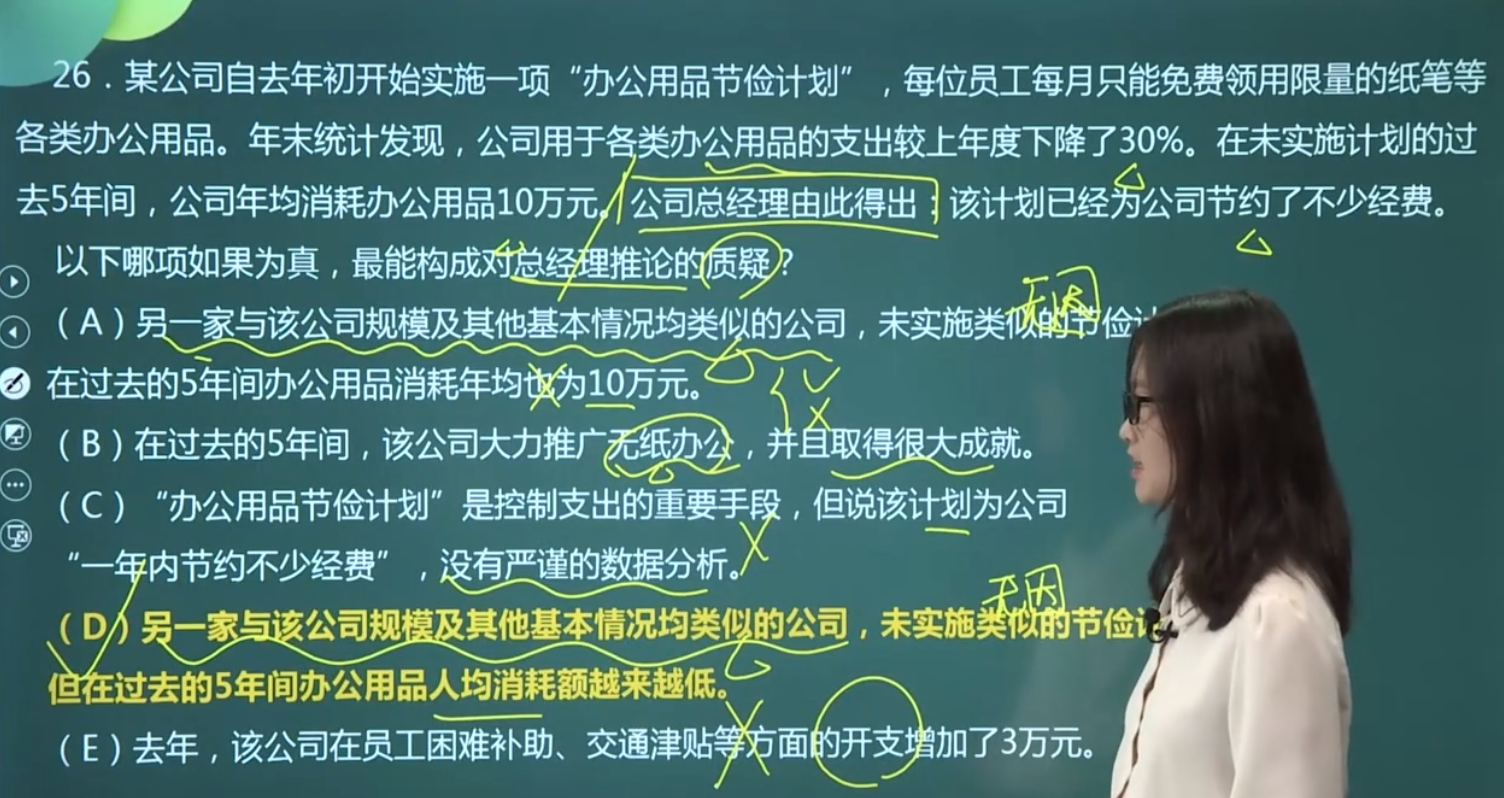 26．某公司自去年初开始实施一项“办公用品节俭计划”，每位员工每月只能免费领用限量的纸笔等
各类办公用品。年末统计发现，公司用于各类办公用品的支出较上年度下降了30%。在未实施计划的过
去5年间，公司年均消耗办公用品10万元。公司总经理由此得出：该计划已经为公司节约了不少经费。
以下哪项如果为真，最能构成对总经理推论的质疑？
无因
（A）另一家与该公司规模及其他基本情况均类似的公司，未实施类似的节俭
在过去的5年间办公用品消耗年均也为10万元。
（B）在过去的5年间，该公司大力推广无纸办公，并且取得很大成就。
（C）“办公用品节俭计划”是控制支出的重要手段，但说该计划为公司
“一年内节约不少经费”，没有严谨的数据分析。
无因
（D）另一家与该公司规模及其他基本情况均类似的公司，未实施类似的节俭
但在过去的5年间办公用品人均消耗额越来越低。
（E）去年，该公司在员工困难补助、交通津贴等方面的开支增加了3万元。